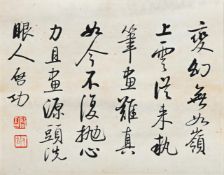 變幻無如嶺
上雲從來執
筆畫難真
如今不復拋心
力且畫源頭洗
眼人啟功